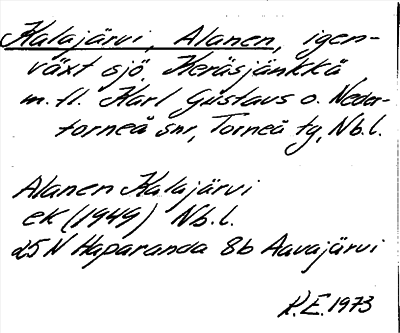 Kalajärvi, Alanen, igen-
växt sjö, Keräsjänkkä
m.fl. Karl Gustavs o. Neder-
torneå snr, Torneå tg, Nb.l.
Alanen Kalajärvi
ek (1949) Nb.l.
25N Haparanda 8b Aavajärvi
K.E. 1973